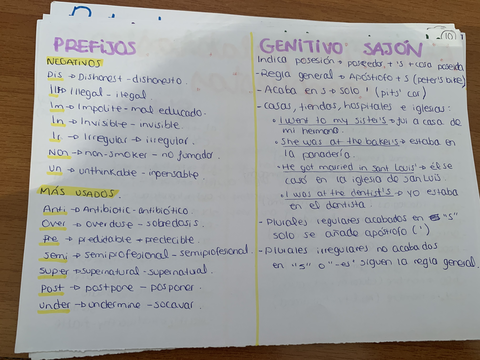 PREFIJOS
NEGATIVOS
Dis → Dishonest - dishonesto
Ill → Illegal - ilegal
Im → Impolite - mal educado.
In → Invisible - invisible.
Ir → Irregular → irregular.
Non → non-smoker - no fumador.
un → unthinkable - inpensable.
MÁS USADOS.
Anti → Antibiotic - antibiótico
Over → overdose - sobredosis.
Pre → predudable → predecible.
semi → semiprofesional - semiprofesional.
super → supernatural - supernatural.
Post → postpone - posponer
under → undermine - socavar.
10
GENITIVO SAJÓN
Indica posesión → poseedor, + 's + cosa poseida
- Regla general → Apóstrofo + S (peter's bike)
- Acaba en s → solo ' (pits' car)
- casas, tiendas, hospitales e iglesias:
• I went to my siste's → fui a casa de
mi hermana.
• She was at the baker's → estaba en
la panadería.
• He got married in sant Louis' → él se
casó en la iglesia de san Luis.
• I was at the dentist's → yo estaba
en el dentista.
- Plurales regulares acabados en "s"
solo se añade apóstrofo (')
- Plurales irregulares no acabados
en "s" o "-es" siguen la regla general.